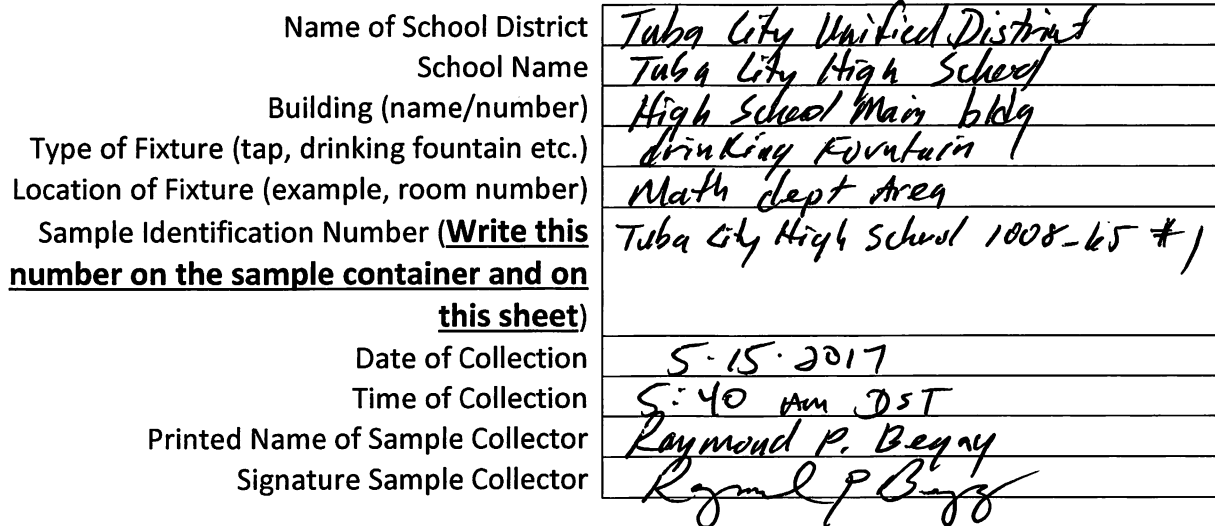 Name of School District Tuba City Unified District
School Name Tuba City High School
Building (name/number) High School Main bldg
Type of Fixture (tap, drinking fountain etc.) drinking Fountain
Location of Fixture (example, room number) Math dept Area
Sample Identification Number (Write this Tuba City High School 1008-k5 #1
number on the sample container and on
this sheet)
Date of Collection 5-15-2017
Time of Collection 5:40 Am DST
Printed Name of Sample Collector Raymond P. Begay
Signature Sample Collector Raymond P Begay